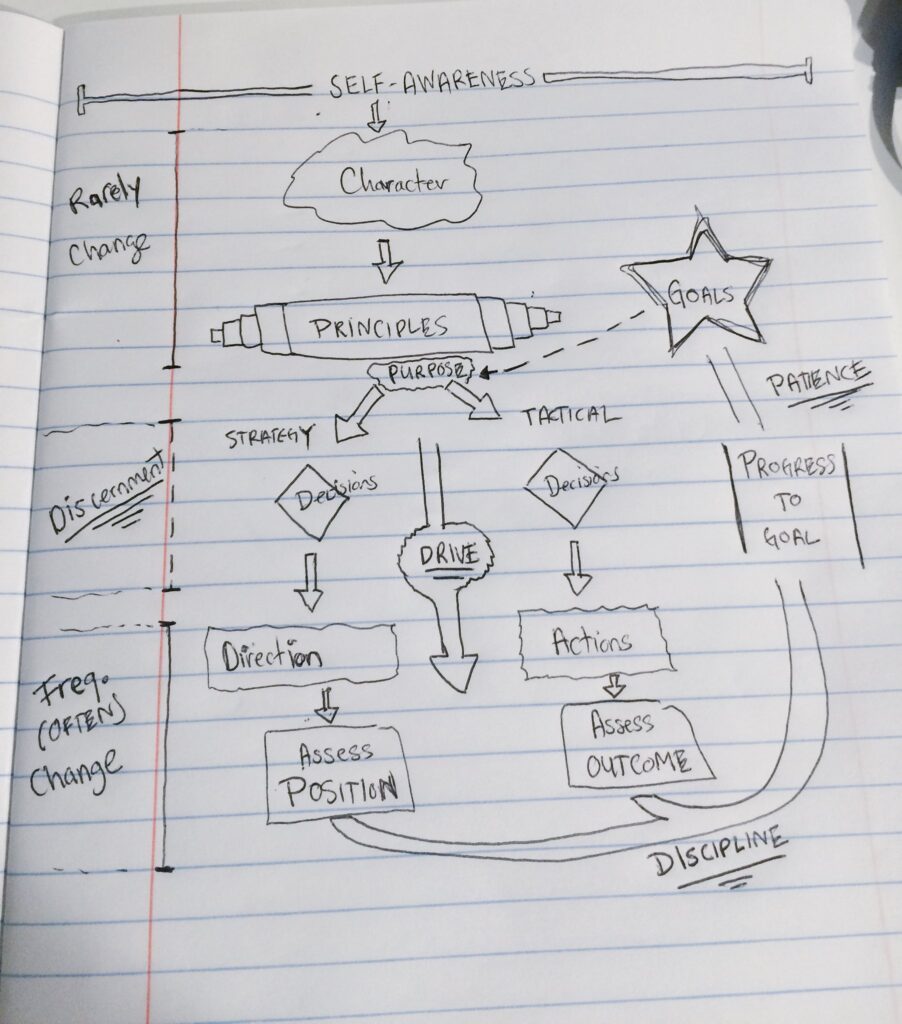 SELF-AWARENESS
Character
Rarely
Change
GOALS
PRINCIPLES
PURPOSE
PATIENCE
STRATEGY
TACTICAL
Discernment
Decisions
Decisions
PROGRESS
TO
GOAL
DRIVE
Direction
Actions
Freq.
(OFTEN)
Change
Assess
POSITION
Assess
OUTCOME
DISCIPLINE